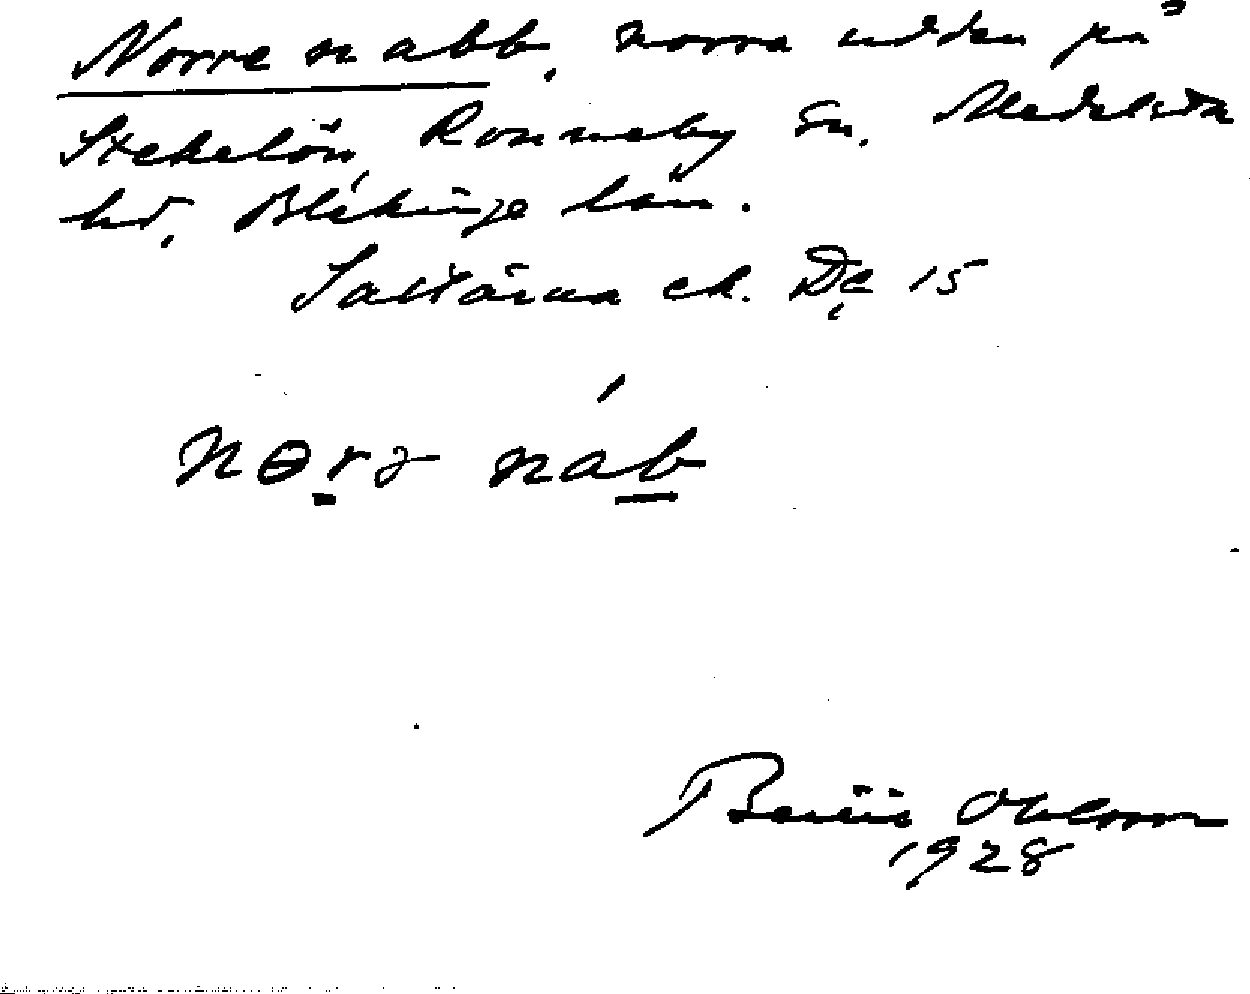 Norre nabb, norra udden på
Stekelön, Ronneby sn. Medelsta
hd, Blekinge län.
Saltärna ek. Dc 15
nɵrə nab
Bertil Ohlson
1928